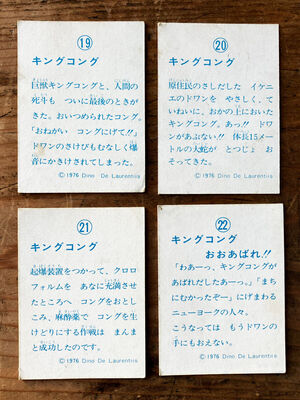 19
キングコング
巨獣キングコングと、人間の
死斗も　ついに最後のときが
きた。おいつめられたコング。
「おねがい　コングにげて!!」
ドワンのさけびもむなしく爆
音にかきけされてしまった。
©1976 Dino De Laurentiis
20
キングコング
原住民のさしだした　イケニ
エのドワンを　やさしく、て
いねいに、おかの上においた
キングコング。あっ!!　ドワ
ンがあぶない!!　体長15メー
トルの大蛇が　とつじょ　お
そってきた。
©1976 Dino De Laurentiis
21
キングコング
起爆装置をつかって、クロロ
フォルムを　あなに充満させ
たところへ　コングをおとし
こみ、麻酔薬で　コングを生
けどりにする作戦は　まんま
と成功したのです。
©1976 Dino De Laurentiis
22
キングコング
おおあばれ!!
「わあーっ、キングコングが
あばれだしたあーっ。」「まち
にむかったぞー」にげまわる
ニューヨークの人々。
こうなっては　もうドワンの
手にもおえない。
©1976 Dino De Laurentiis